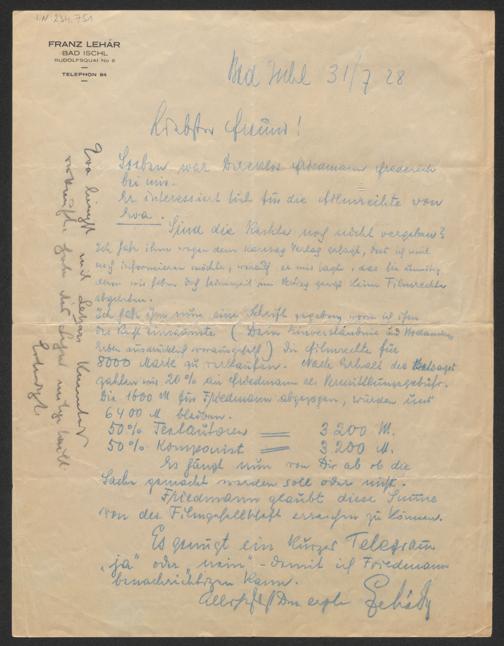 I.N. 234.751
FRANZ LEHÁR
BAD ISCHL
RUDOLFSQUAI No 8
TELEPHON 84
Bad Ischl 31/7. 28
Liebster Freund!
Soeben war Direktor Friedmann Frederich
bei mir.
Er interessiert sich für die Filmrechte von
Eva.
Sind die Rechte noch nicht vergeben?
Ich habe ihm wegen dem Karczag Verlag gesagt, dass ich mich
noch informieren möchte, worauf er mir sagte, das sei unnötig,
denn wir haben doch seinerzeit im Vertrag die Filmrechte
abgetreten.
Ich habe ihm nun eine Schrift gegeben worin ich ihm
das Recht einräumte (Dein Einverständnis und Bodanzkys
Erben ausdrücklich vorausgesetzt) die Filmrechte für
8000 Mark zu verkaufen. Nach Erhalt des Betrages
zahlen wir 20% an Friedmann als Vermittlungsgebühr.
Die 1600 M für Friedmann abgezogen, würden uns
6400 M bleiben.
50% Textautoren = 3200 M.
50% Komponist = 3.200 M.
Es hängt nun von Dir ab ob die
Sache gemacht werden soll oder nicht.
Friedmann glaubt diese Summe
von der Filmgesellschaft erreichen zu können.
Es genügt ein kurzes Telegram
"ja" oder "nein", - damit ich Friedmann
benachrichtigen kann.
Allerherzlichst Dein ergeb. Lehár
Eva
mit Lehárs